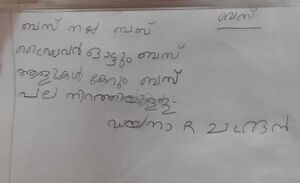 ബസ്
ബസ് നല്ല ബസ്
ഡ്രൈവർ ഓട്ടും ബസ്
ആളുകൾ കേറും ബസ്
പല നിറത്തിയുള്ള
ഡയനാ R ചന്ദ്രൻ